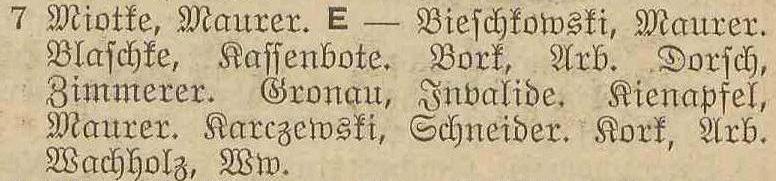 7 Miotke, Maurer. E — Bieschkowski, Maurer.
Blaschke, Kassenbote. Bork, Arb. Dorsch,
Zimmerer. Gronau, Invalide. Kienapfel,
Maurer. Karczewski, Schneider. Kork, Arb.
Wachholz, Ww.